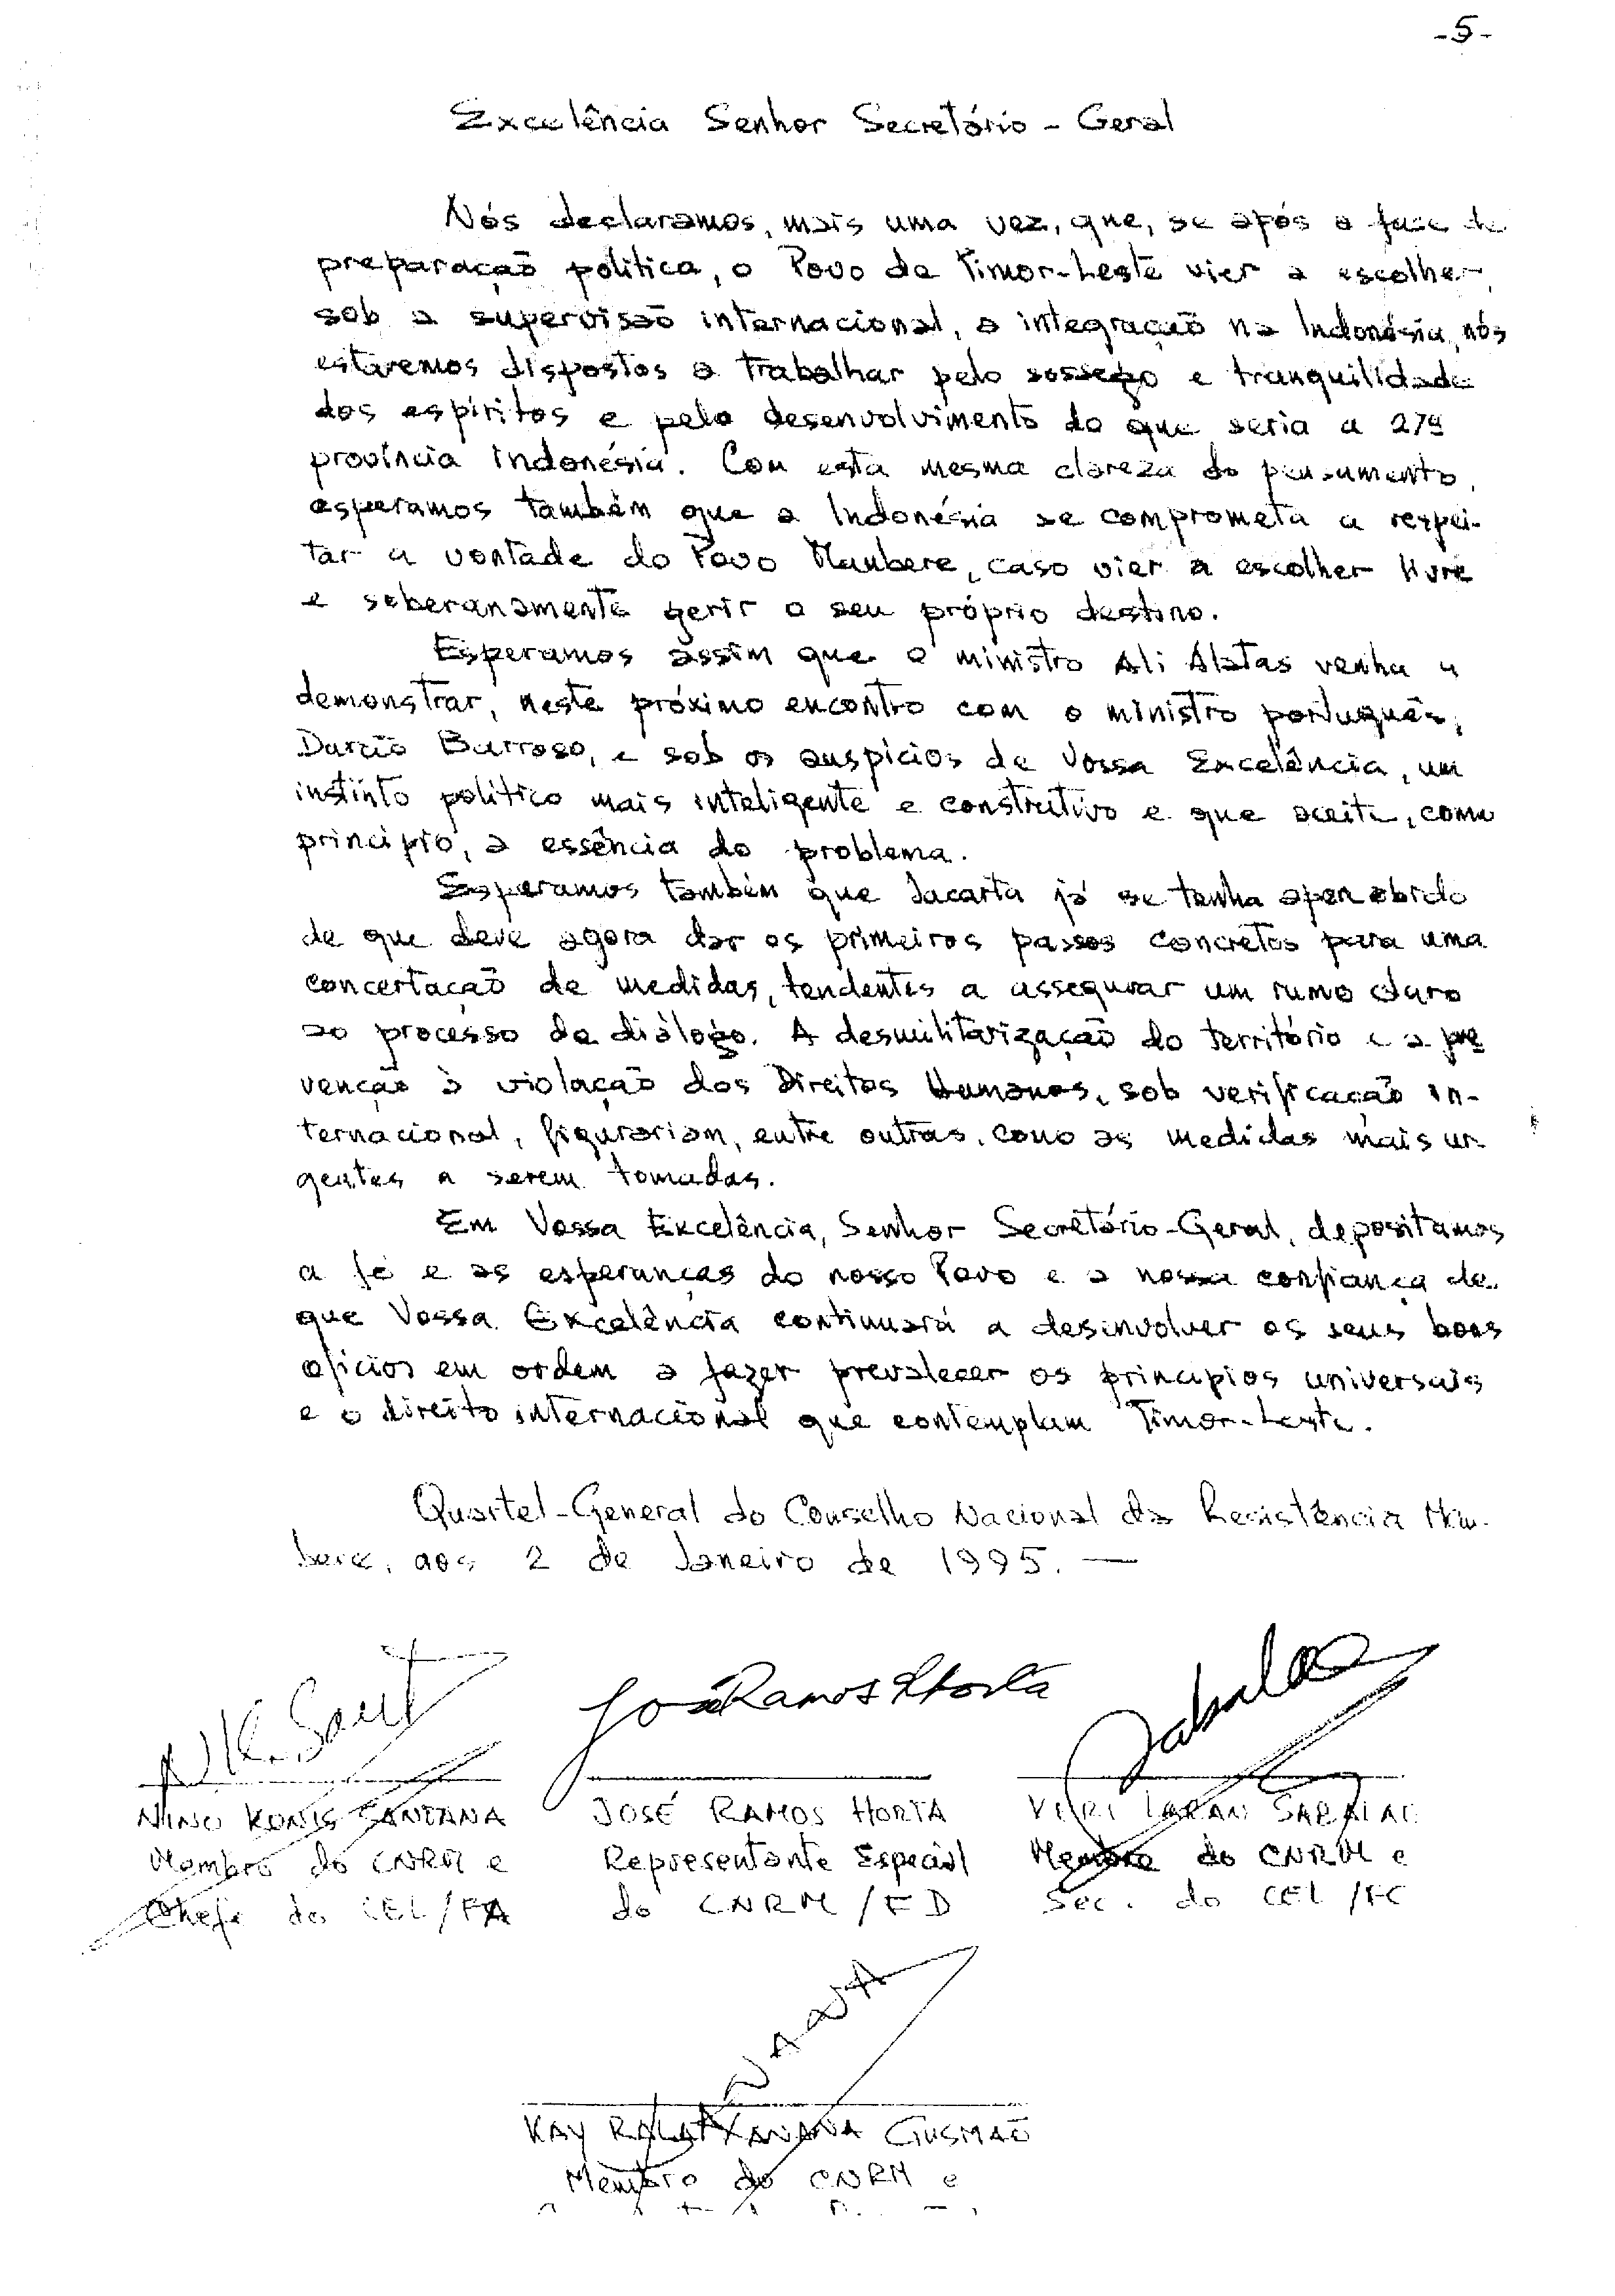 -5-
Excelência Senhor Secretário-Geral
Nós declaramos, mais uma vez, que, se após a fase de
preparação política, o Povo de Timor-Leste vier a escolher,
sob a supervisão internacional, a integração na Indonésia, nós
estaremos dispostos a trabalhar pelo sossego e tranquilidade
dos espíritos e pelo desenvolvimento do que seria a 27ª
província indonésia. Com esta mesma clareza do pensamento,
esperamos também que a Indonésia se comprometa a respei-
tar a vontade do Povo Maubere, caso vier a escolher livre
e soberanamente gerir o seu próprio destino.
Esperamos assim que o ministro Ali Alatas venha a
demonstrar, neste próximo encontro com o ministro português,
Durão Barroso, e sob os auspícios de Vossa Excelência, um
instinto político mais inteligente e construtivo e que aceite, como
princípio, a essência do problema.
Esperamos também que Jacarta já se tenha apercebido
de que deve agora dar os primeiros passos concretos para uma
concertação de medidas, tendentes a assegurar um rumo claro
ao processo de diálogo. A desmilitarização do território e a pre
venção à violação dos Direitos Humanos, sob verificação in-
ternacional, figurariam, entre outras, como as medidas mais ur-
gentes a serem tomadas.
Em Vossa Excelência, Senhor Secretário-Geral, depositamos
a fé e as esperanças do nosso Povo e a nossa confiança de
que Vossa Excelência continuará a desinvolver os seus bons
ofícios em ordem a fazer prevalecer os princípios universais
e o direito internacional que contemplam Timor-Leste.
Quartel-General do Conselho Nacional da Resistência Mau-
bere, aos 2 de Janeiro de 1995. —
N.K. Sant
José Ramos Horta
Sabalae
NINO KONIS SANTANA
Membro do CNRM e
Chefe do CEL/FA
JOSÉ RAMOS HORTA
Representante Especial
do CNRM/FD
VIRI LARAN SABALAE
Membro do CNRM e
Sec. do CEL/FC
XANANA
KAY RALA XANANA GUSMÃO
Membro do CNRM e